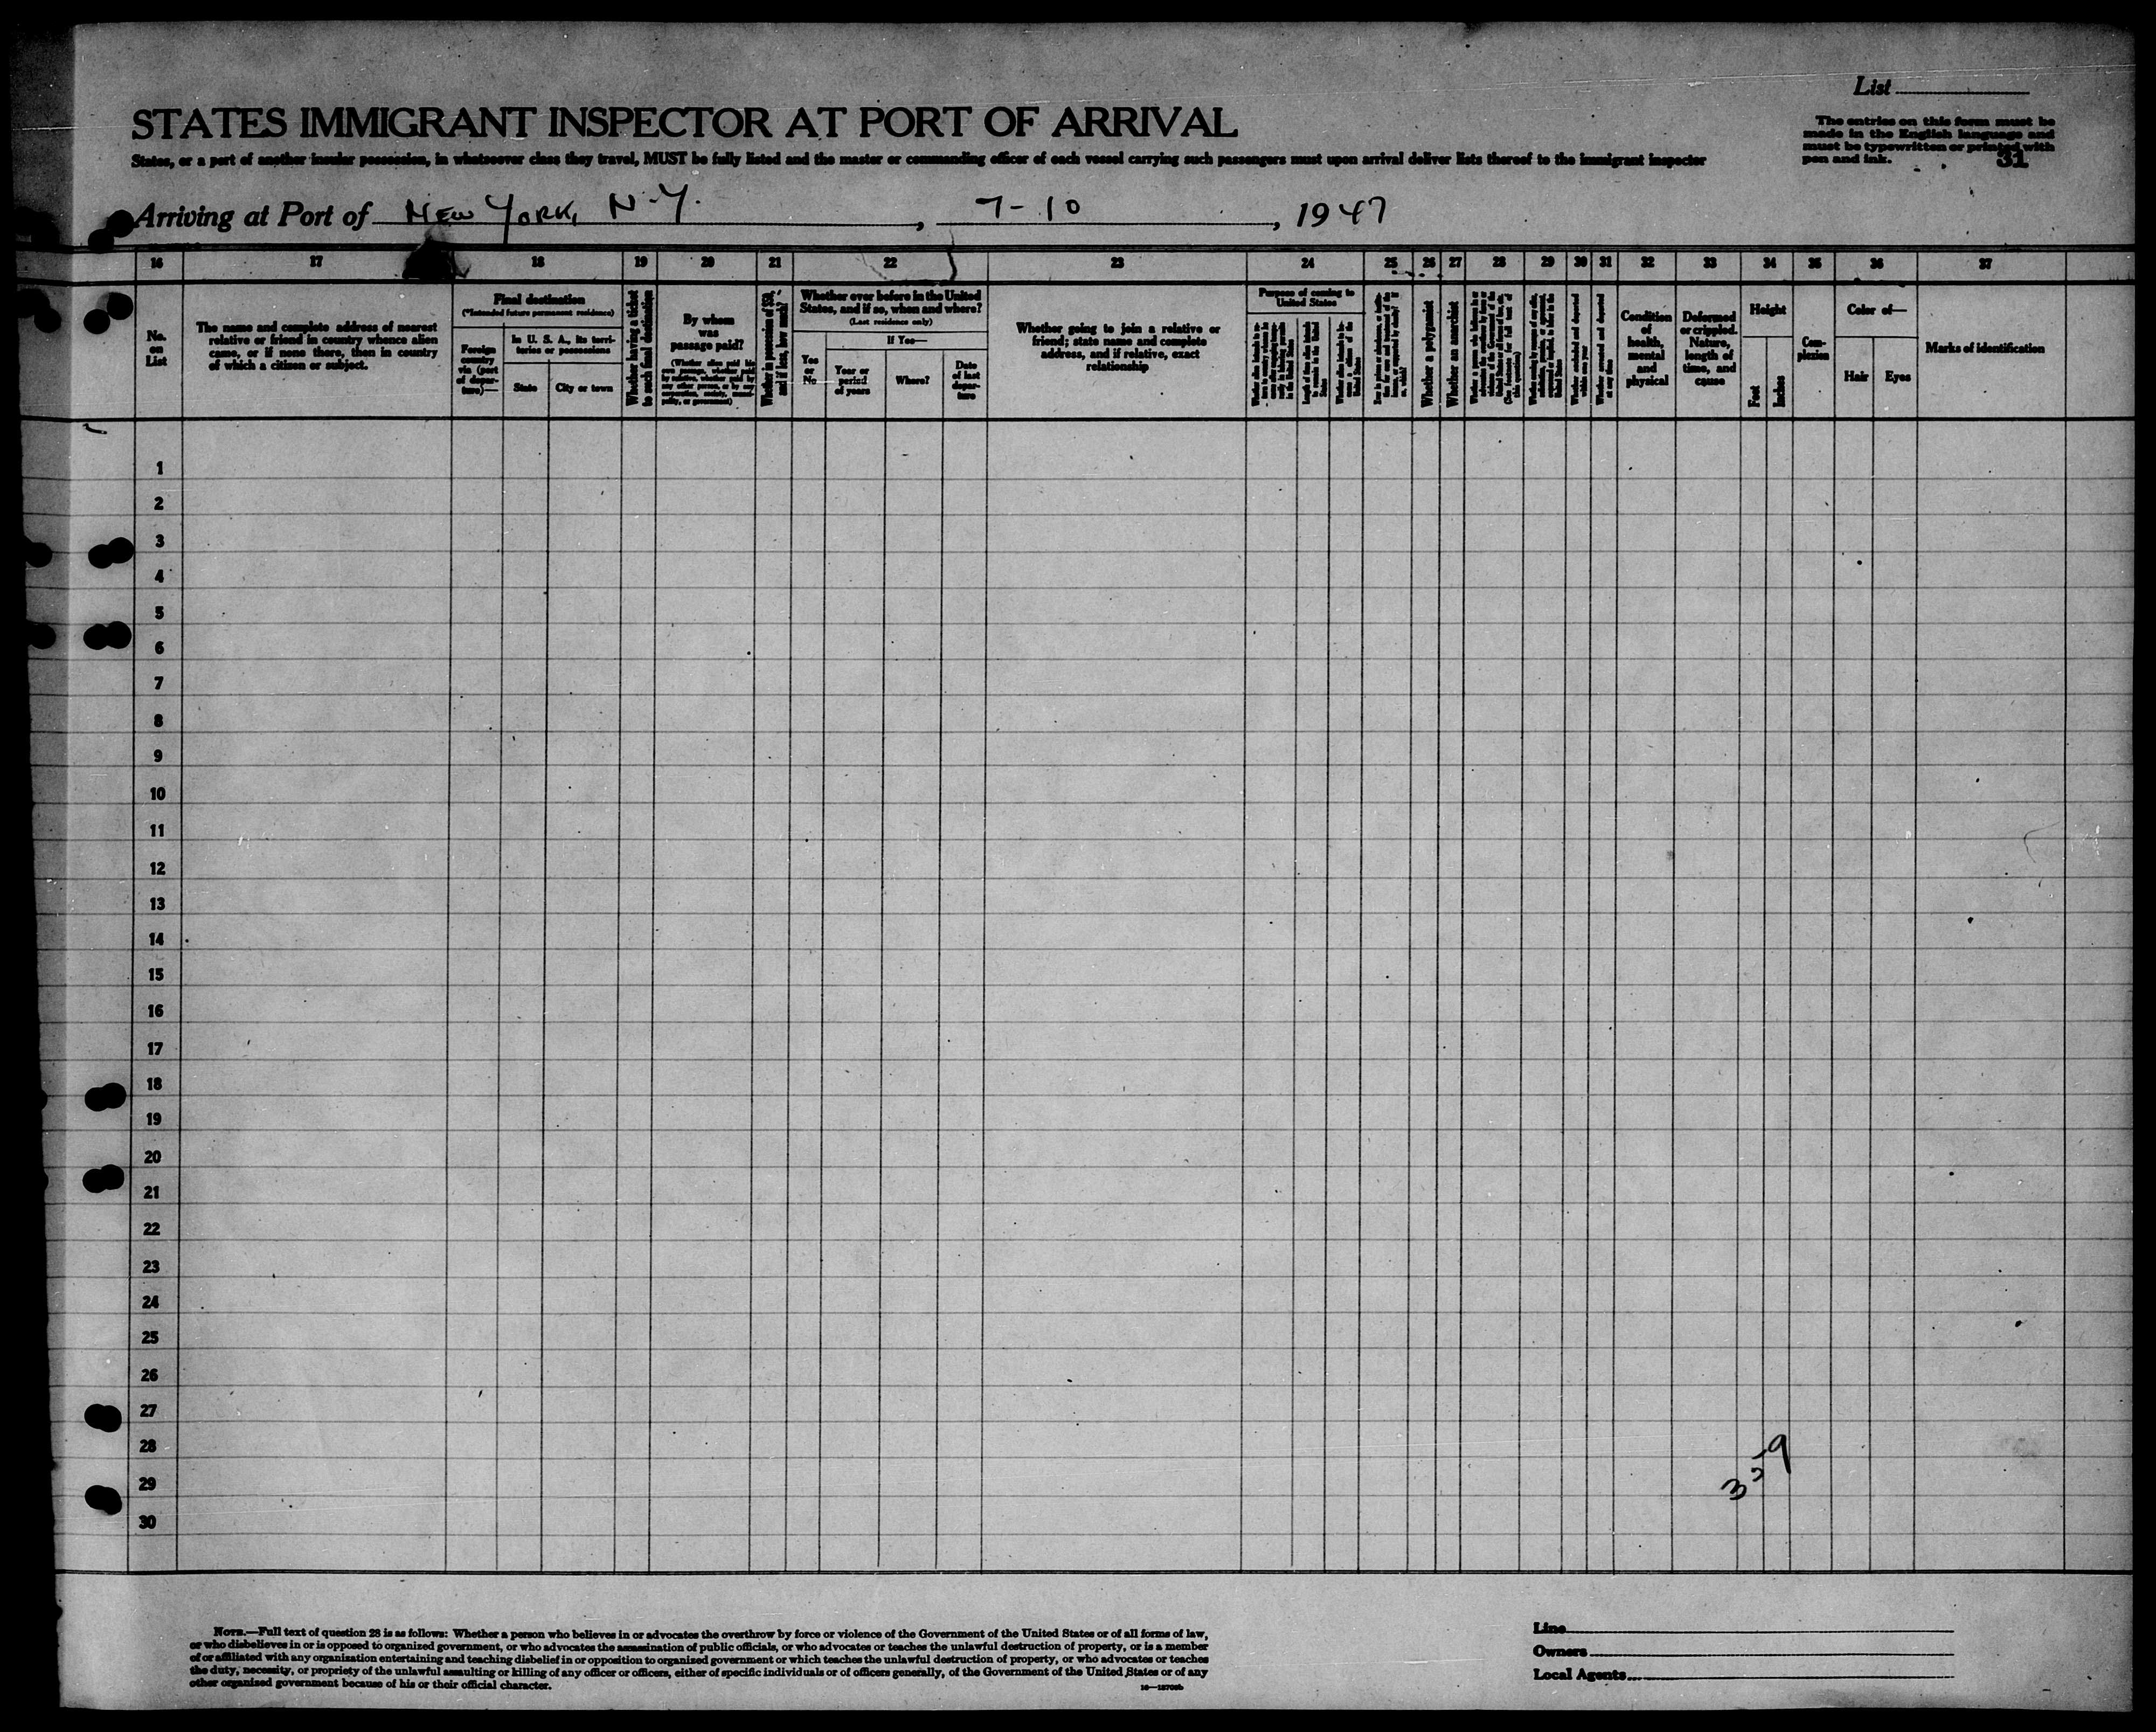 List
STATES IMMIGRANT INSPECTOR AT PORT OF ARRIVAL
The entries on this form must be
made in the English language and
must be typewritten or printed with
pen and ink.
31
States, or a port of another insular possession, in whatsoever class they travel, MUST be fully listed and the master or commanding officer of each vessel carrying such passengers must upon arrival deliver lists thereof to the immigrant inspector
Arriving at Port of NEW YORK, N.Y. , 7-10 , 1947
16 17 18 19 20 21 22 23 24 25 26 27 28 29 30 31 32 33 34 35 36 37
No.
on
List
The name and complete address of nearest
relative or friend in country whence alien
came, or if none there, then in country
of which a citizen or subject.
Final destination
(*Intended future permanent residence)
Foreign
country
via (port
of depar-
ture)—
In U. S. A., its terri-
tories or possessions
State
City or town
Whether having a ticket
to such final destination
By whom
was
passage paid?
(Whether alien paid his
own passage, whether paid
by relative, whether paid by
any other person, or by any
corporation, society, munici-
pality, or government)
Whether in possession of $50,
and if less, how much?
Whether ever before in the United
States, and if so, when and where?
(Last residence only)
Yes
or
No
If Yes—
Year or
period
of years
Where?
Date
of last
depar-
ture
Whether going to join a relative or
friend; state name and complete
address, and if relative, exact
relationship
Purpose of coming to
United States
Whether a polygamist
Whether an anarchist
Condition
of
health,
mental
and
physical
Deformed
or crippled.
Nature,
length of
time, and
cause
Height
Feet
Inches
Com-
plexion
Color of—
Hair
Eyes
Marks of identification
1
2
3
4
5
6
7
8
9
10
11
12
13
14
15
16
17
18
19
20
21
22
23
24
25
26
27
28
29
30
NOTE.—Full text of question 28 is as follows: Whether a person who believes in or advocates the overthrow by force or violence of the Government of the United States or of all forms of law,
or who disbelieves in or is opposed to organized government, or who advocates the assassination of public officials, or who advocates or teaches the unlawful destruction of property, or is a member
of or affiliated with any organization entertaining and teaching disbelief in or opposition to organized government or which teaches the unlawful destruction of property, or who advocates or teaches
the duty, necessity, or propriety of the unlawful assaulting or killing of any officer or officers, either of specific individuals or of officers generally, of the Government of the United States or of any
other organized government because of his or their official character.
Line
Owners
Local Agents